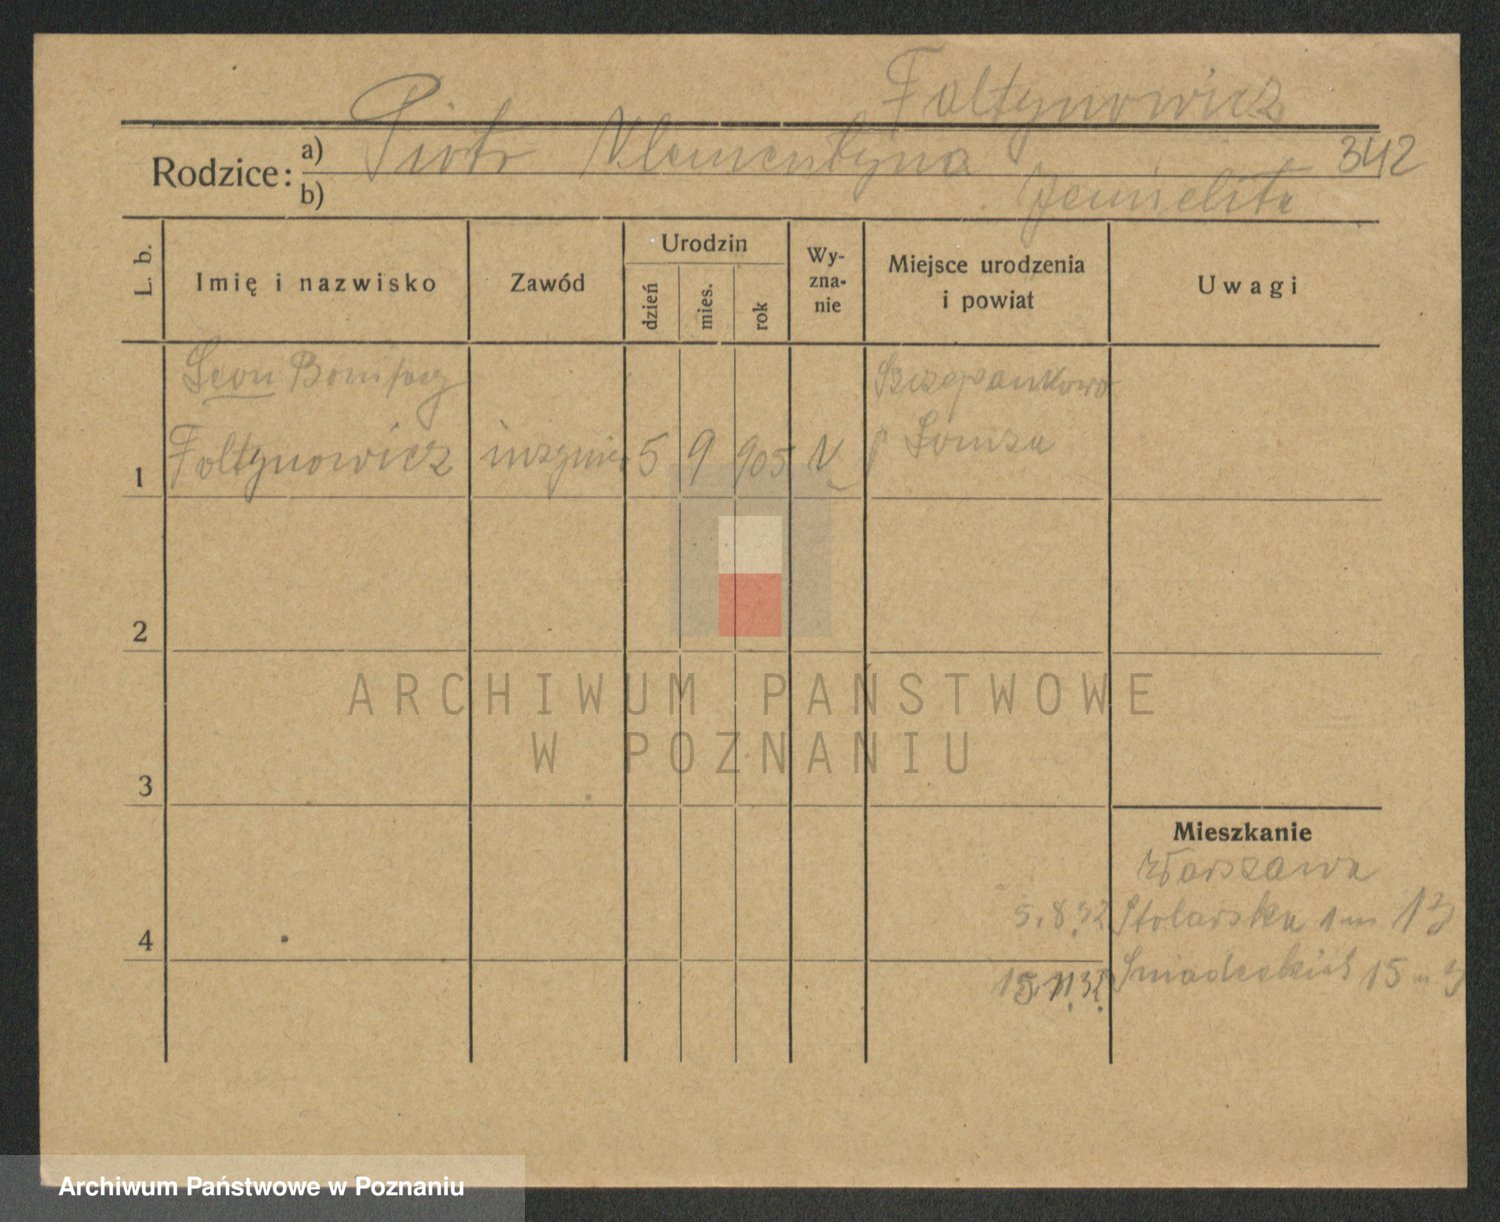 Foltynowicz
Rodzice: a) Piotr Klementyna 342
b) Jemielita
L. b. Imię i nazwisko Zawód Urodzin dzień mies. rok Wy-zna-nie Miejsce urodzenia i powiat Uwagi
Leon Bonifacy Szczepankowo
1 Foltynowicz inżynier 5 9 905 p Łomża
2
3
4
Mieszkanie
Warszawa
5.8.32 Stolarska 1 m 13
15.11.32 Śniadeckich 15 m 3
ARCHIWUM PAŃSTWOWE
W POZNANIU
Archiwum Państwowe w Poznaniu